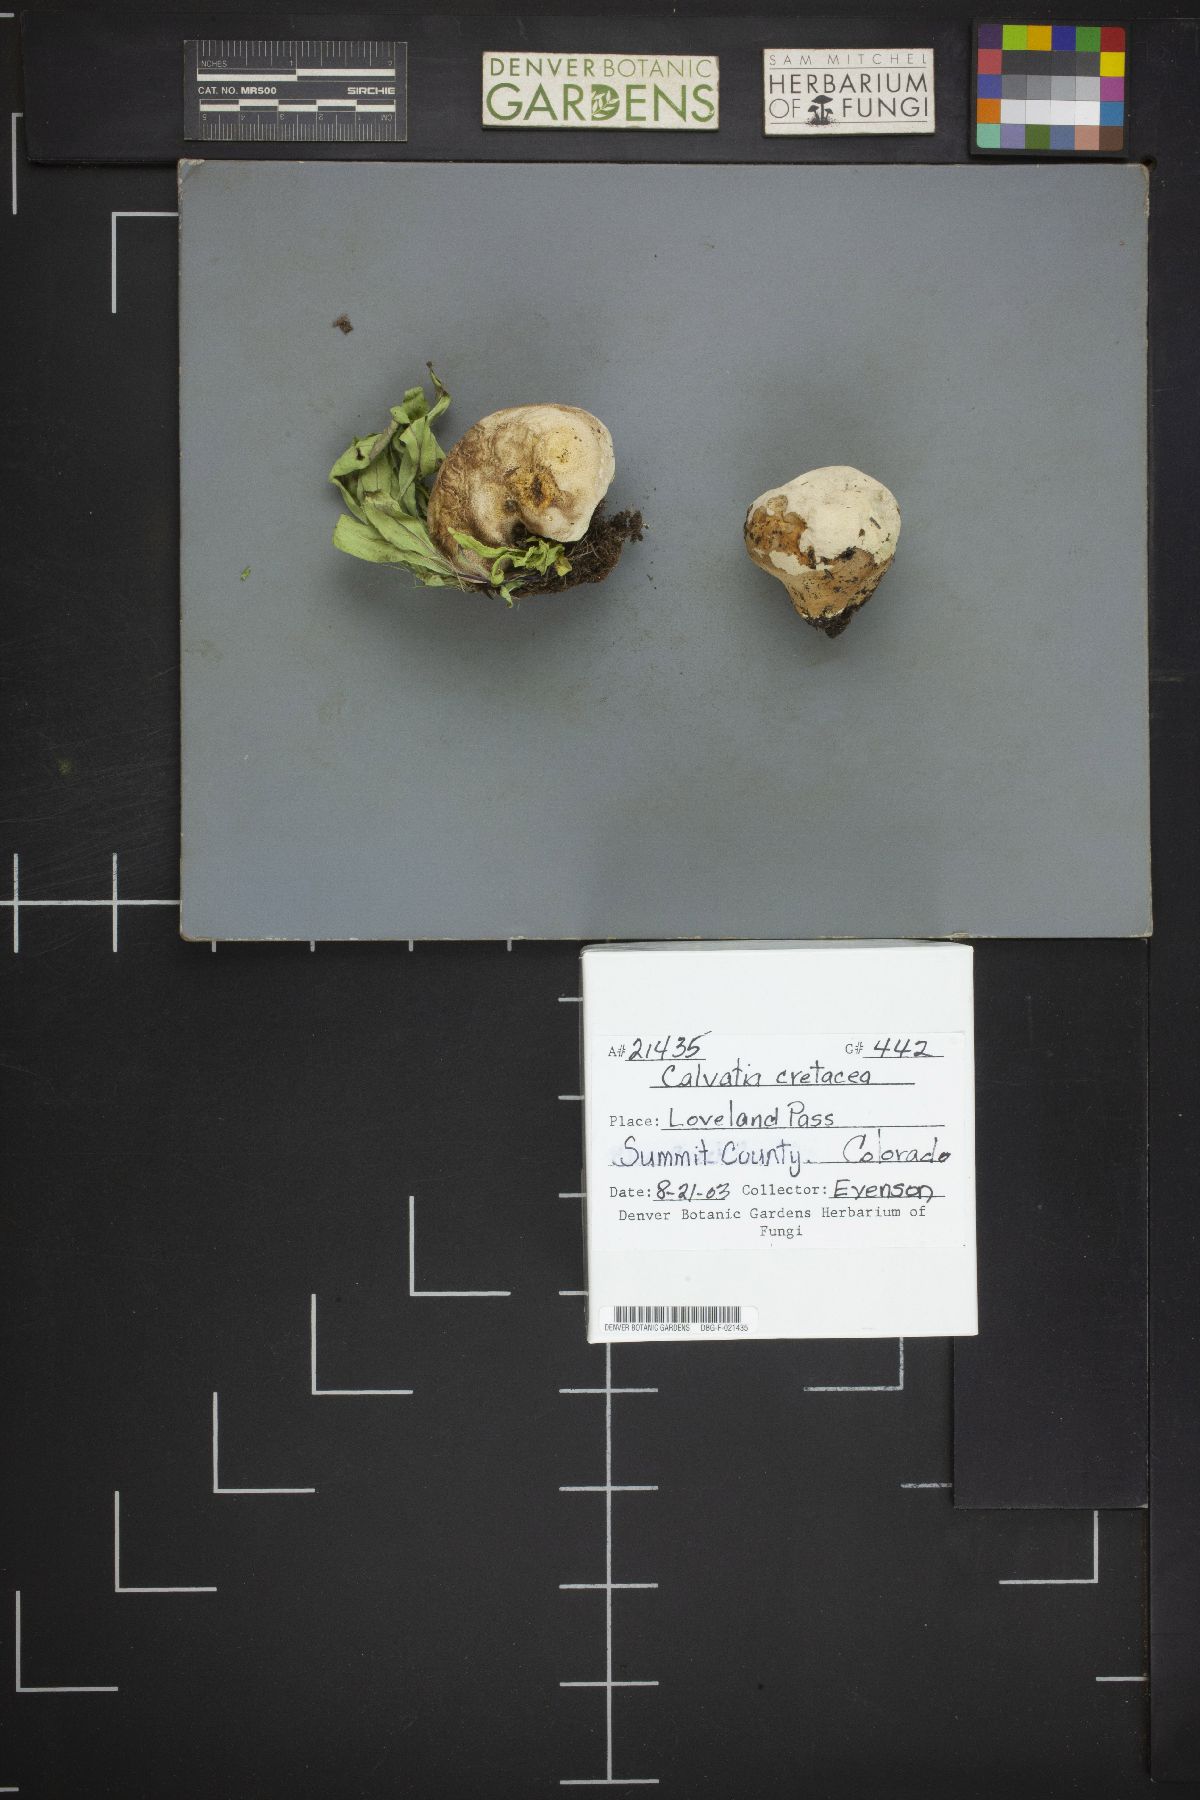 INCHES 1 2
CAT. NO. MR500 SIRCHIE
5 4 3 2 1 CM
DENVER BOTANIC
GARDENS
SAM MITCHEL
HERBARIUM
OF FUNGI
A# 21435 G# 442
Calvatia cretacea
Place: Loveland Pass
Summit County. Colorado
Date: 8-21-03 Collector: Evenson
Denver Botanic Gardens Herbarium of
Fungi
DENVER BOTANIC GARDENS DBG-F-021435